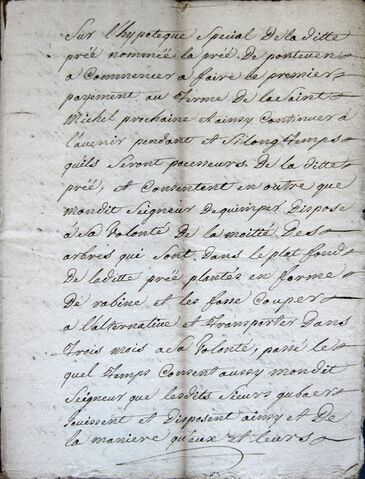 Sur l'hypoteque Special de la ditte
préé nommée la préé de ponteven
a Commencer a faire le premier
payement au terme de la Saint
Michel prochaine et ainsy Continuer a
l'avenir pendant et Si longtemps
quils Seront possesseurs de la ditte
préé, et Consentent en outre que
mondit Seigneur de quimper dispose
a Sa Volonté de la moitié des
arbres que sont dans le plat fond
de laditte préé plantez en forme
de rabine et les fasse Couper
a l'alternative et transporter dans
trois mois a Sa Volonté, passé le
quel temps Consent aussy mondit
Seigneur que lesdits Sieurs gubaer
Jouissent et disposent ainsy et de
la maniere qu'eux et leurs